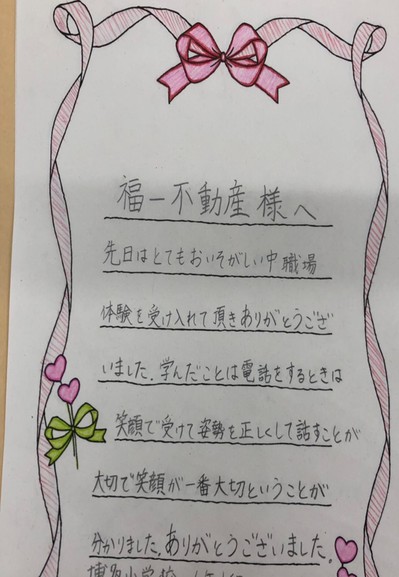 福一不動産様へ
先日はとてもおいそがしい中職場
体験を受け入れて頂きありがとうござ
いました。学んだことは電話をするときは
笑顔で受けて姿勢を正しくして話すことが
大切で笑顔が一番大切ということが
分かりました。ありがとうございました。
博多小学校